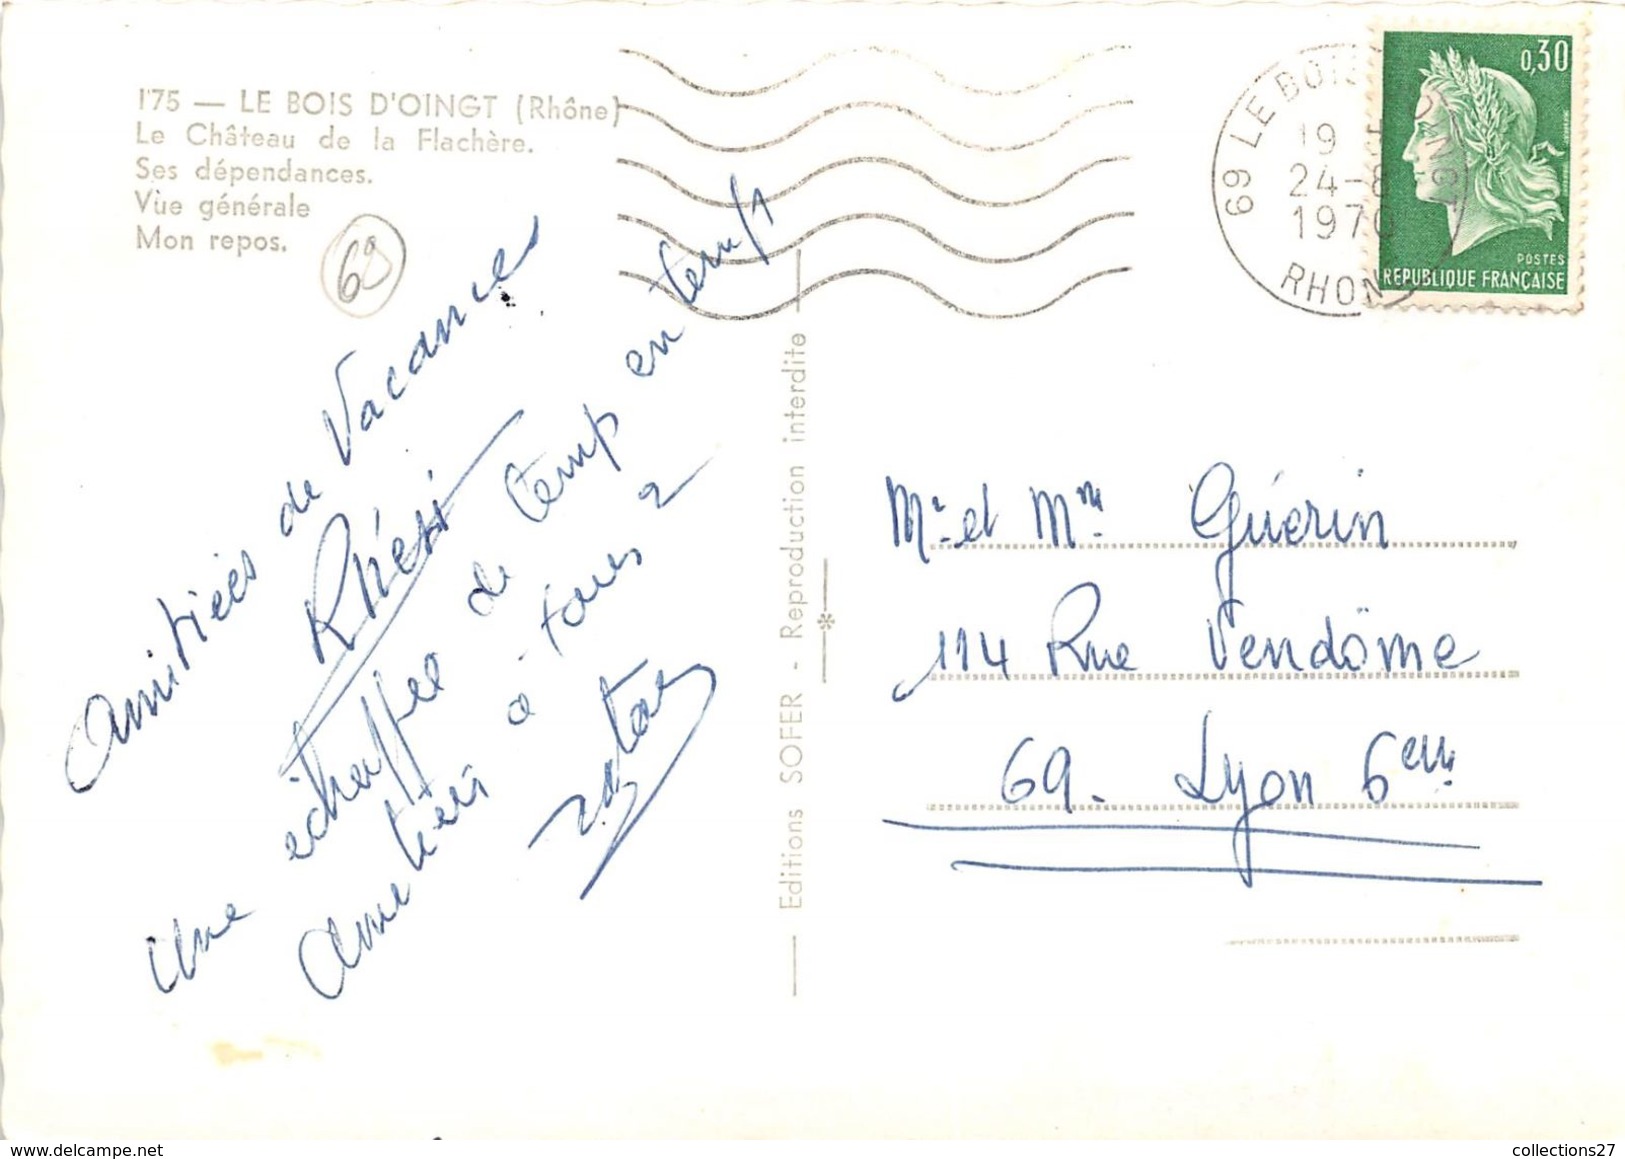 175 — LE BOIS D'OINGT (Rhône)
Le Château de la Flachère.
Ses dépendances.
Vüe générale
Mon repos.
69
69 LE BOIS D'OINGT
19 H
24-8
1970
RHONE
0,30
POSTES
REPUBLIQUE FRANÇAISE
Amitiées de Vacances
Une échappée de temp en temps
Amitiés à tous 2
Editions SOFER - Reproduction interdite
Mr et Mme Guérin
114 Rue Vendôme
69. Lyon 6eme
collections27